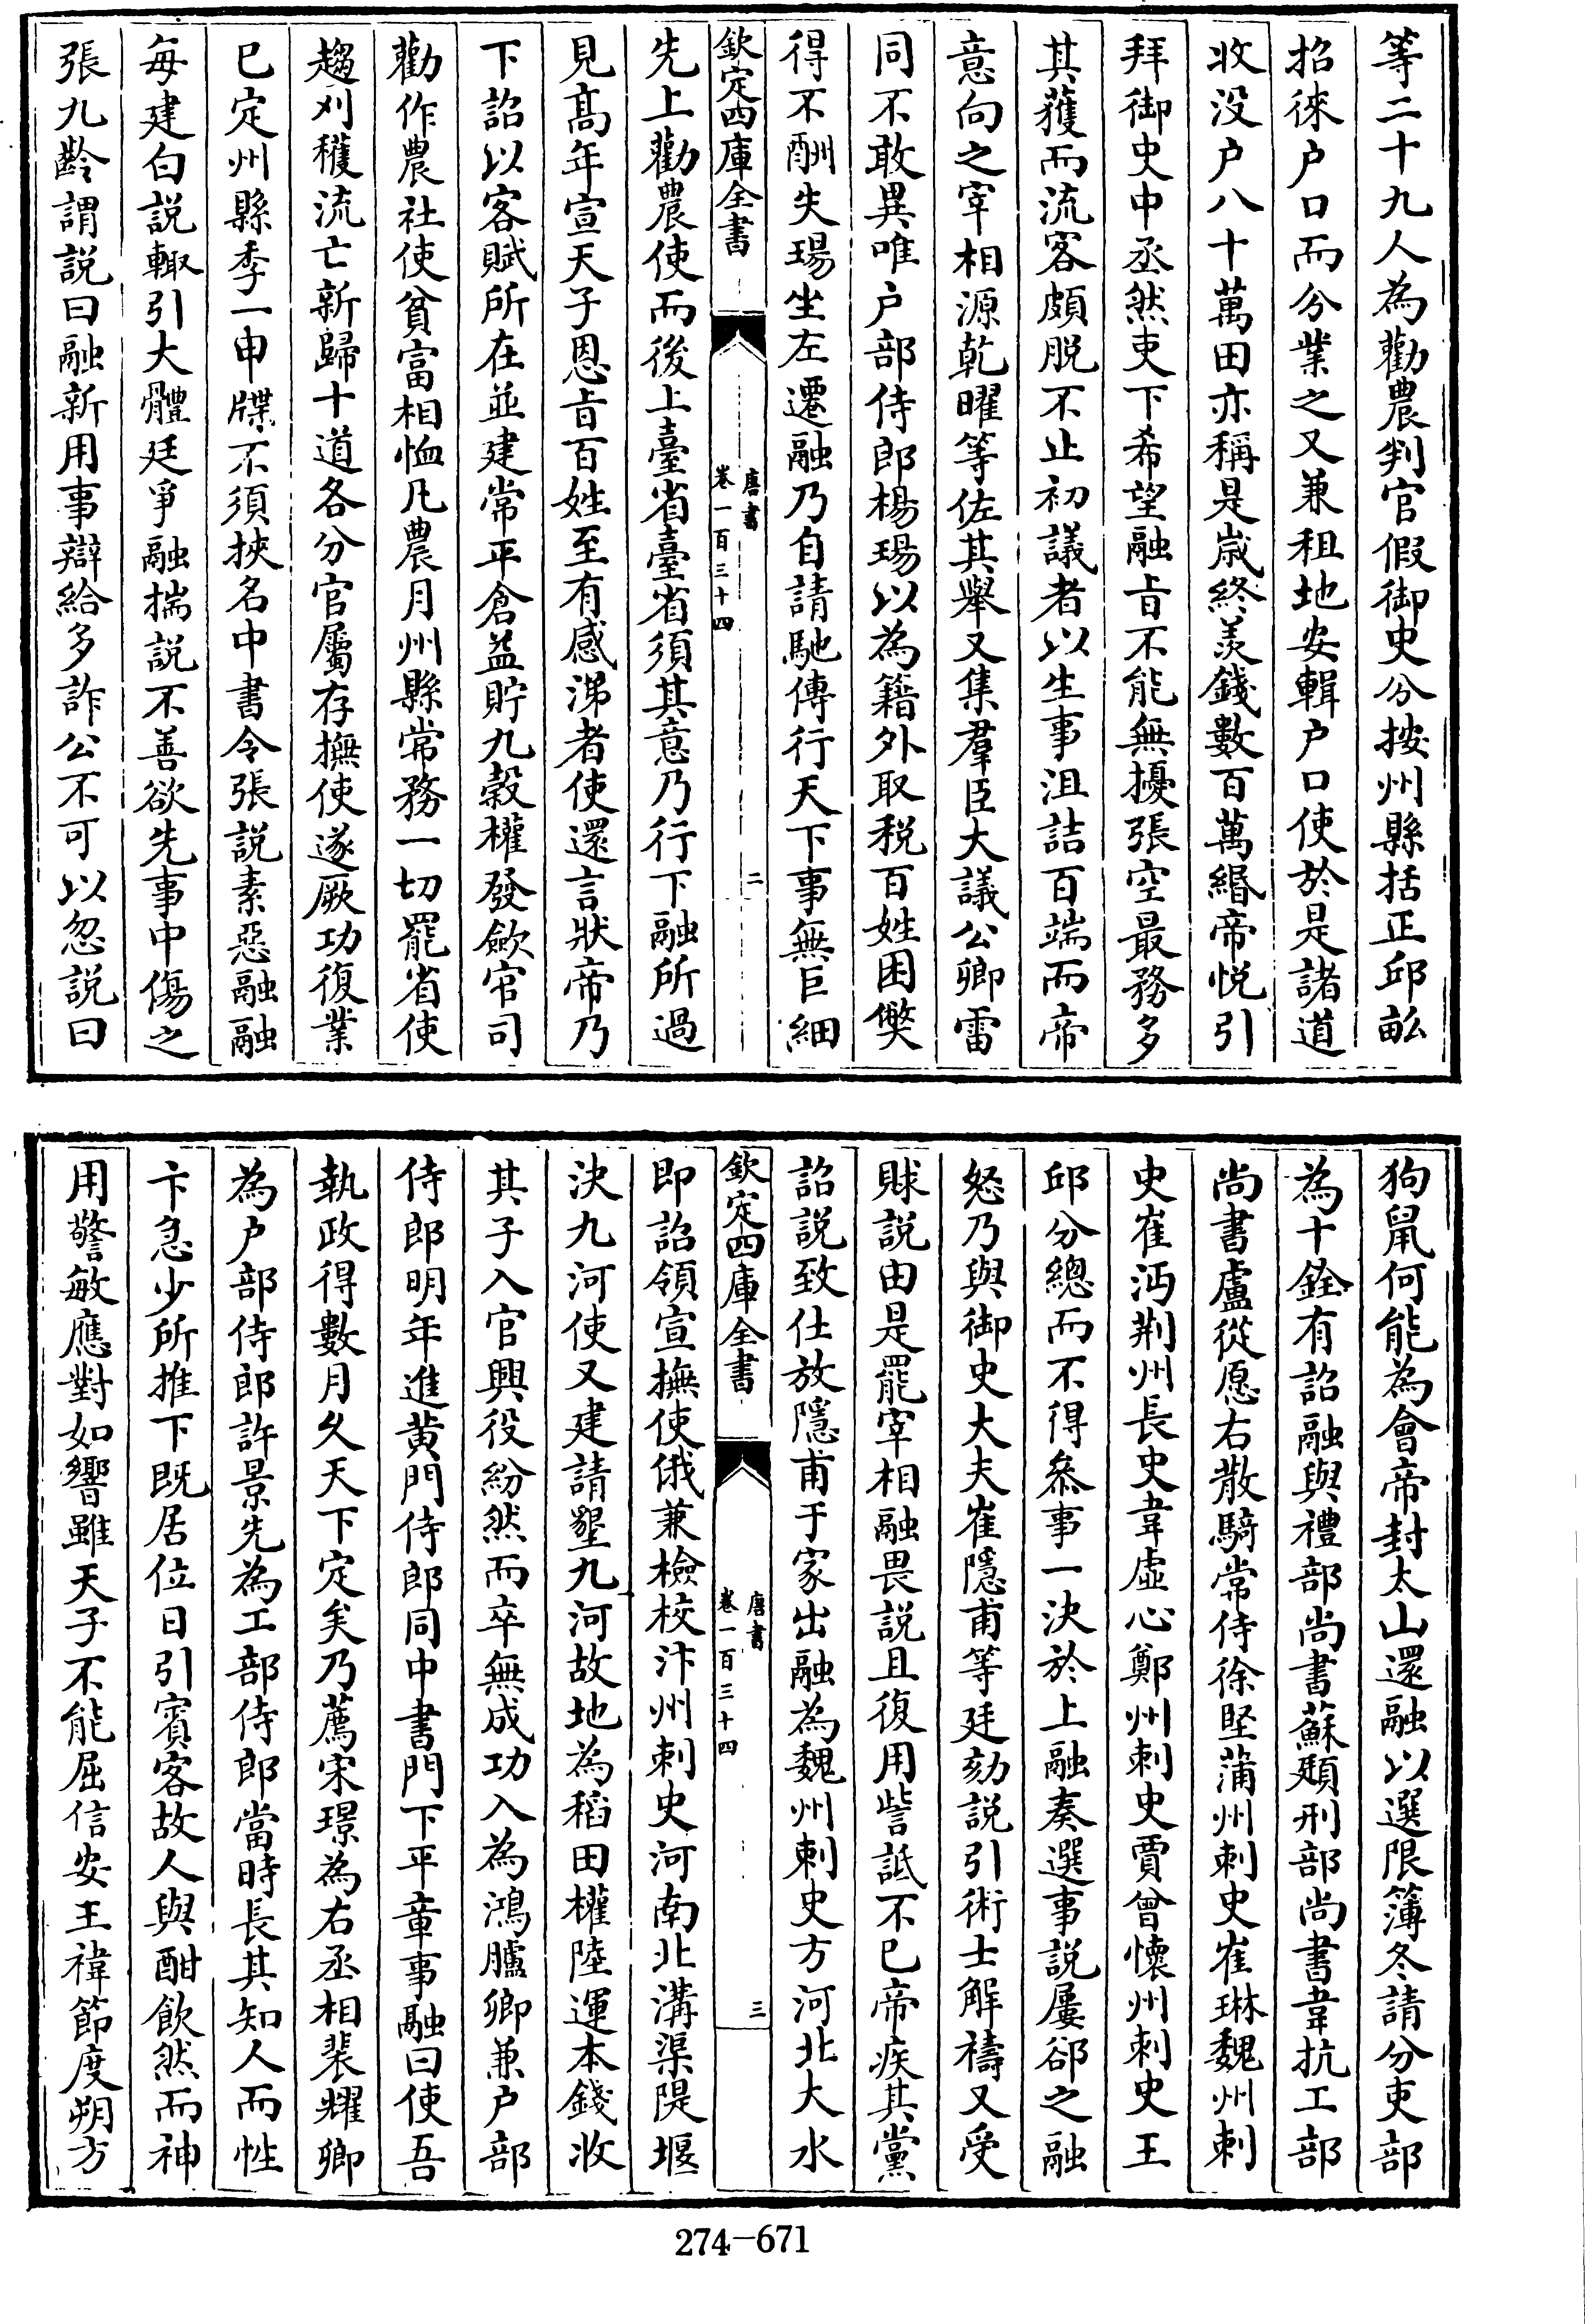 等二十九人為勸農判官假御史分按州縣括正邱畝
招徠户口而分業之又兼租地安輯户口使於是諸道
收没户八十萬田亦稱是嵗終羨錢數百萬緡帝悦引
拜御史中丞然吏下希望融㫖不能無擾張空最務多
其穫而流客頗脱不止初議者以生事沮詰百端而帝
意向之宰相源乾曜等佐其舉又集羣臣大議公卿雷
同不敢異唯户部侍郎楊瑒以為籍外取税百姓困弊
得不酬失瑒坐左遷融乃自請馳傳行天下事無巨細
欽定四庫全書
唐書
卷一百三十四
二
先上勸農使而後上臺省臺省須其意乃行下融所過
見髙年宣天子恩㫖百姓至有感涕者使還言狀帝乃
下詔以客賦所在並建常平倉益貯九穀權發歛官司
勸作農社使貧富相恤凡農月州縣常務一切罷省使
趨刈穫流亡新歸十道各分官屬存撫使遂厥功復業
已定州縣季一申牒不須挾名中書令張説素惡融融
每建白説輙引大體廷爭融揣説不善欲先事中傷之
張九齡謂説曰融新用事辯給多詐公不可以忽説曰
狗鼠何能為會帝封太山還融以選限簿冬請分吏部
為十銓有詔融與禮部尚書蘇頲刑部尚書韋抗工部
尚書盧從愿右散騎常侍徐堅蒲州刺史崔琳魏州刺
史崔沔荆州長史韋虛心鄭州刺史賈曾懷州刺史王
邱分總而不得叅事一決於上融奏選事説屢郤之融
怒乃與御史大夫崔隱甫等廷劾説引術士解禱又受
賕説由是罷宰相融畏説且復用訾詆不已帝疾其黨
詔説致仕放隱甫于家出融為魏州刺史方河北大水
欽定四庫全書
唐書
卷一百三十四
三
即詔領宣撫使俄兼檢校汴州刺史河南北溝渠隄堰
決九河使又建請墾九河故地為稻田權陸運本錢收
其子入官興役紛然而卒無成功入為鴻臚卿兼户部
侍郎明年進黄門侍郎同中書門下平章事融曰使吾
執政得數月久天下定矣乃薦宋璟為右丞相裴耀卿
為户部侍郎許景先為工部侍郎當時長其知人而性
卞急少所推下既居位日引賓客故人與酣飲然而神
用警敏應對如響雖天子不能屈信安王禕節度朔方
274-671